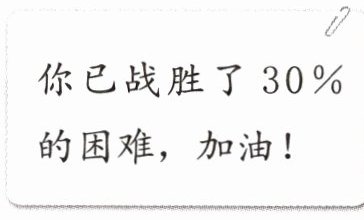 你已战胜了 30%
的困难，加油！